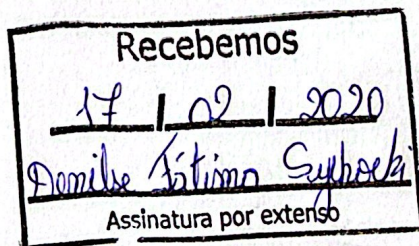 Recebemos
17 / 02 / 2020
Denilse Fátima
Assinatura por extenso